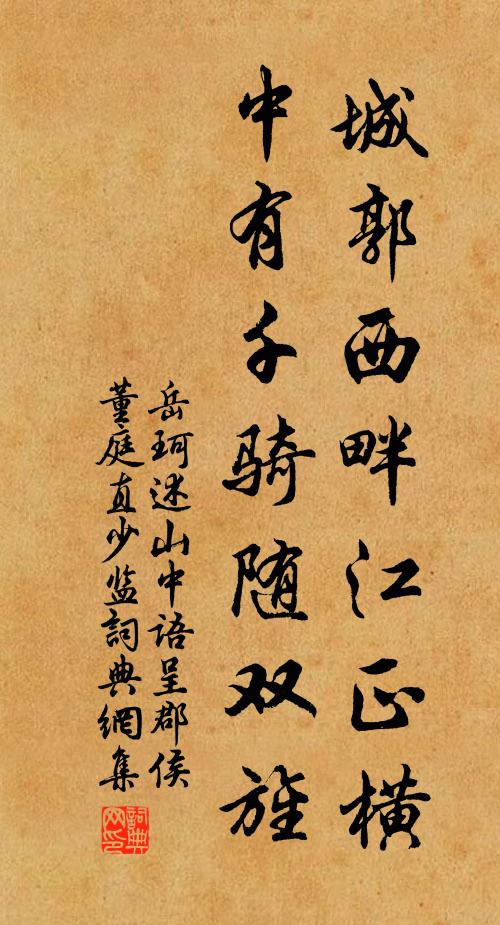 城郭西畔江正横
中有千骑随双旌
岳珂述山中语呈郡侯
董庭直少监詞典網集
詞典网印